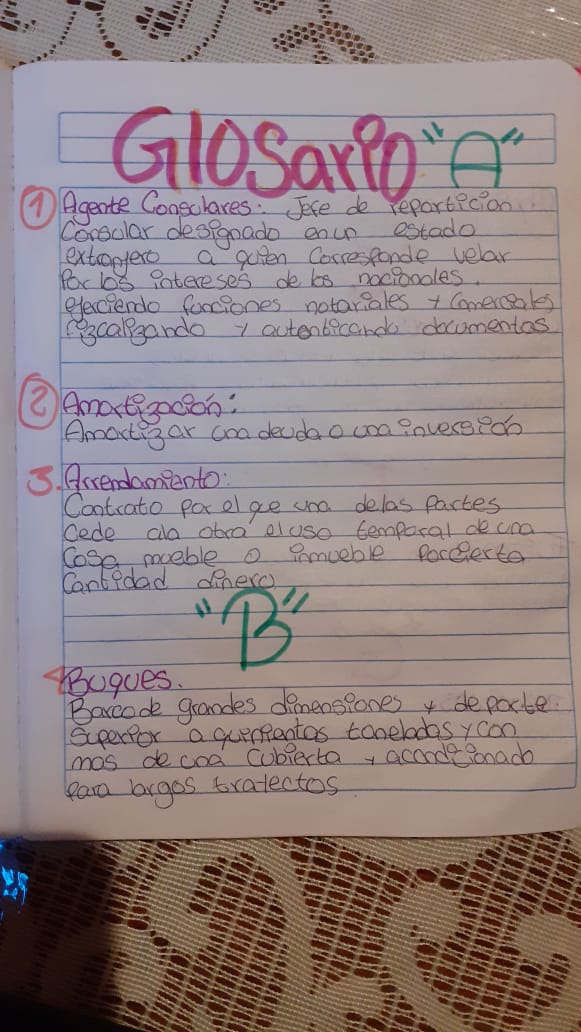 Glosario "A"
1 Agente Consolares: Jefe de repartición
Consular designado en un estado
extranjero a quien Corresponde velar
Por los intereses de los nacionales.
ejerciendo funciones notariales y Comerciales
fizcalizando y autenticando documentos
2 Amortización:
Amortizar una deuda o una inversión
3. Arrendamiento:
Contrato por el que una de las Partes
Cede ala otra el uso temporal de una
Cosa mueble o inmueble porcierta
Cantidad dinero
"B"
4 Buques.
Barco de grandes dimensiones y de porte
Superior a quinientas toneladas y con
mas de una Cubierta y acondicionado
para largos tratectos